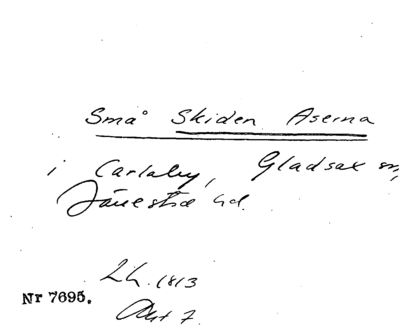 Små Skiden Aserna
i Carlaby, Gladsax sn,
hd.
Lh. 1813
Nr 7695. Akt 7